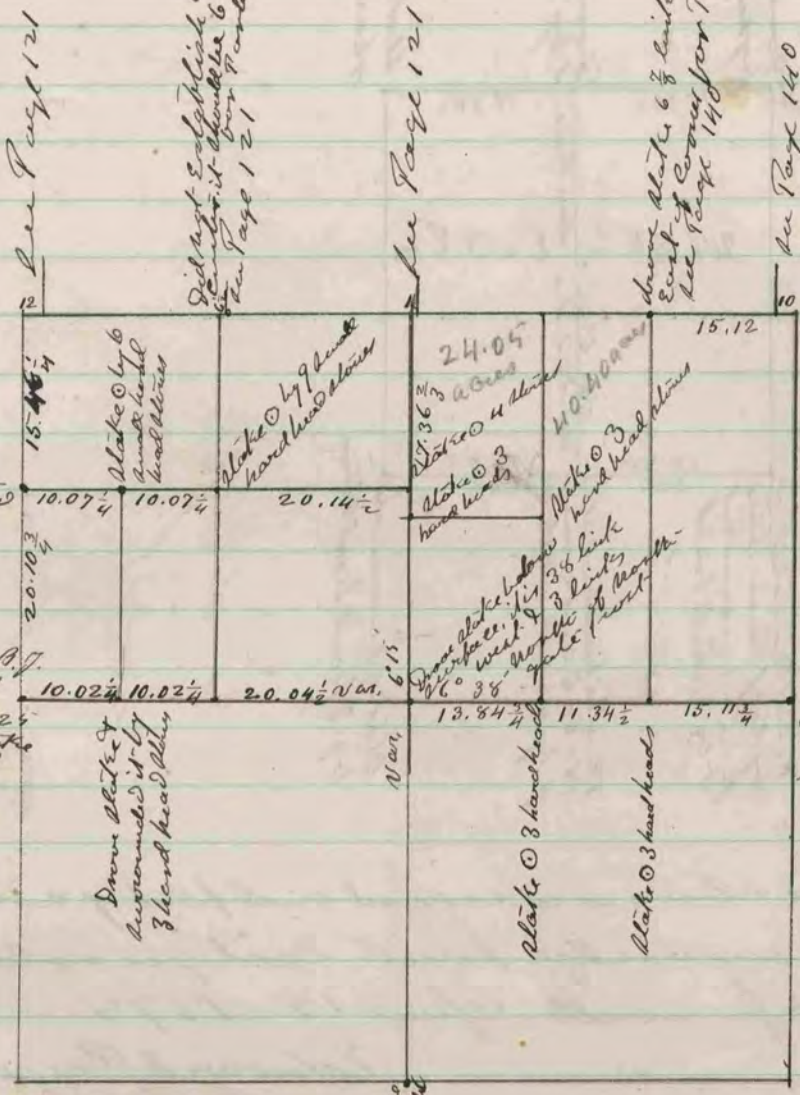 See Page 121
Did not Establish
Center it should be 6
for
See Page 121
See Page 121
drove Stake 6 7/8 links
East of Corner for
See Page 140
See Page 140
12
10
15.12
15.46 1/4
Stake ⊙ by 6
small hard
head stones
Stake ⊙ by 9 small
hard head stones
24.05
acres
17.36 2/3
Stake ⊙ 4 stones
Stake ⊙ 3
hard heads
40.40 acres
Stake ⊙ 3
hard head stones
10.07 1/4
10.07 1/4
20.14 1/2
20.10 3/4
Drove Stake below
surface, it is 38 link
west & 3 links
North of North
gate post
6° 38'
6° 15'
10.02 1/4
10.02 1/4
20.04 1/2 Var.
13.84 3/4
11.34 1/2
15.11 3/4
Var.
Drove Stake &
surrounded it by
3 hard head stones
Stake ⊙ 3 hardheads
Stake ⊙ 3 hardheads